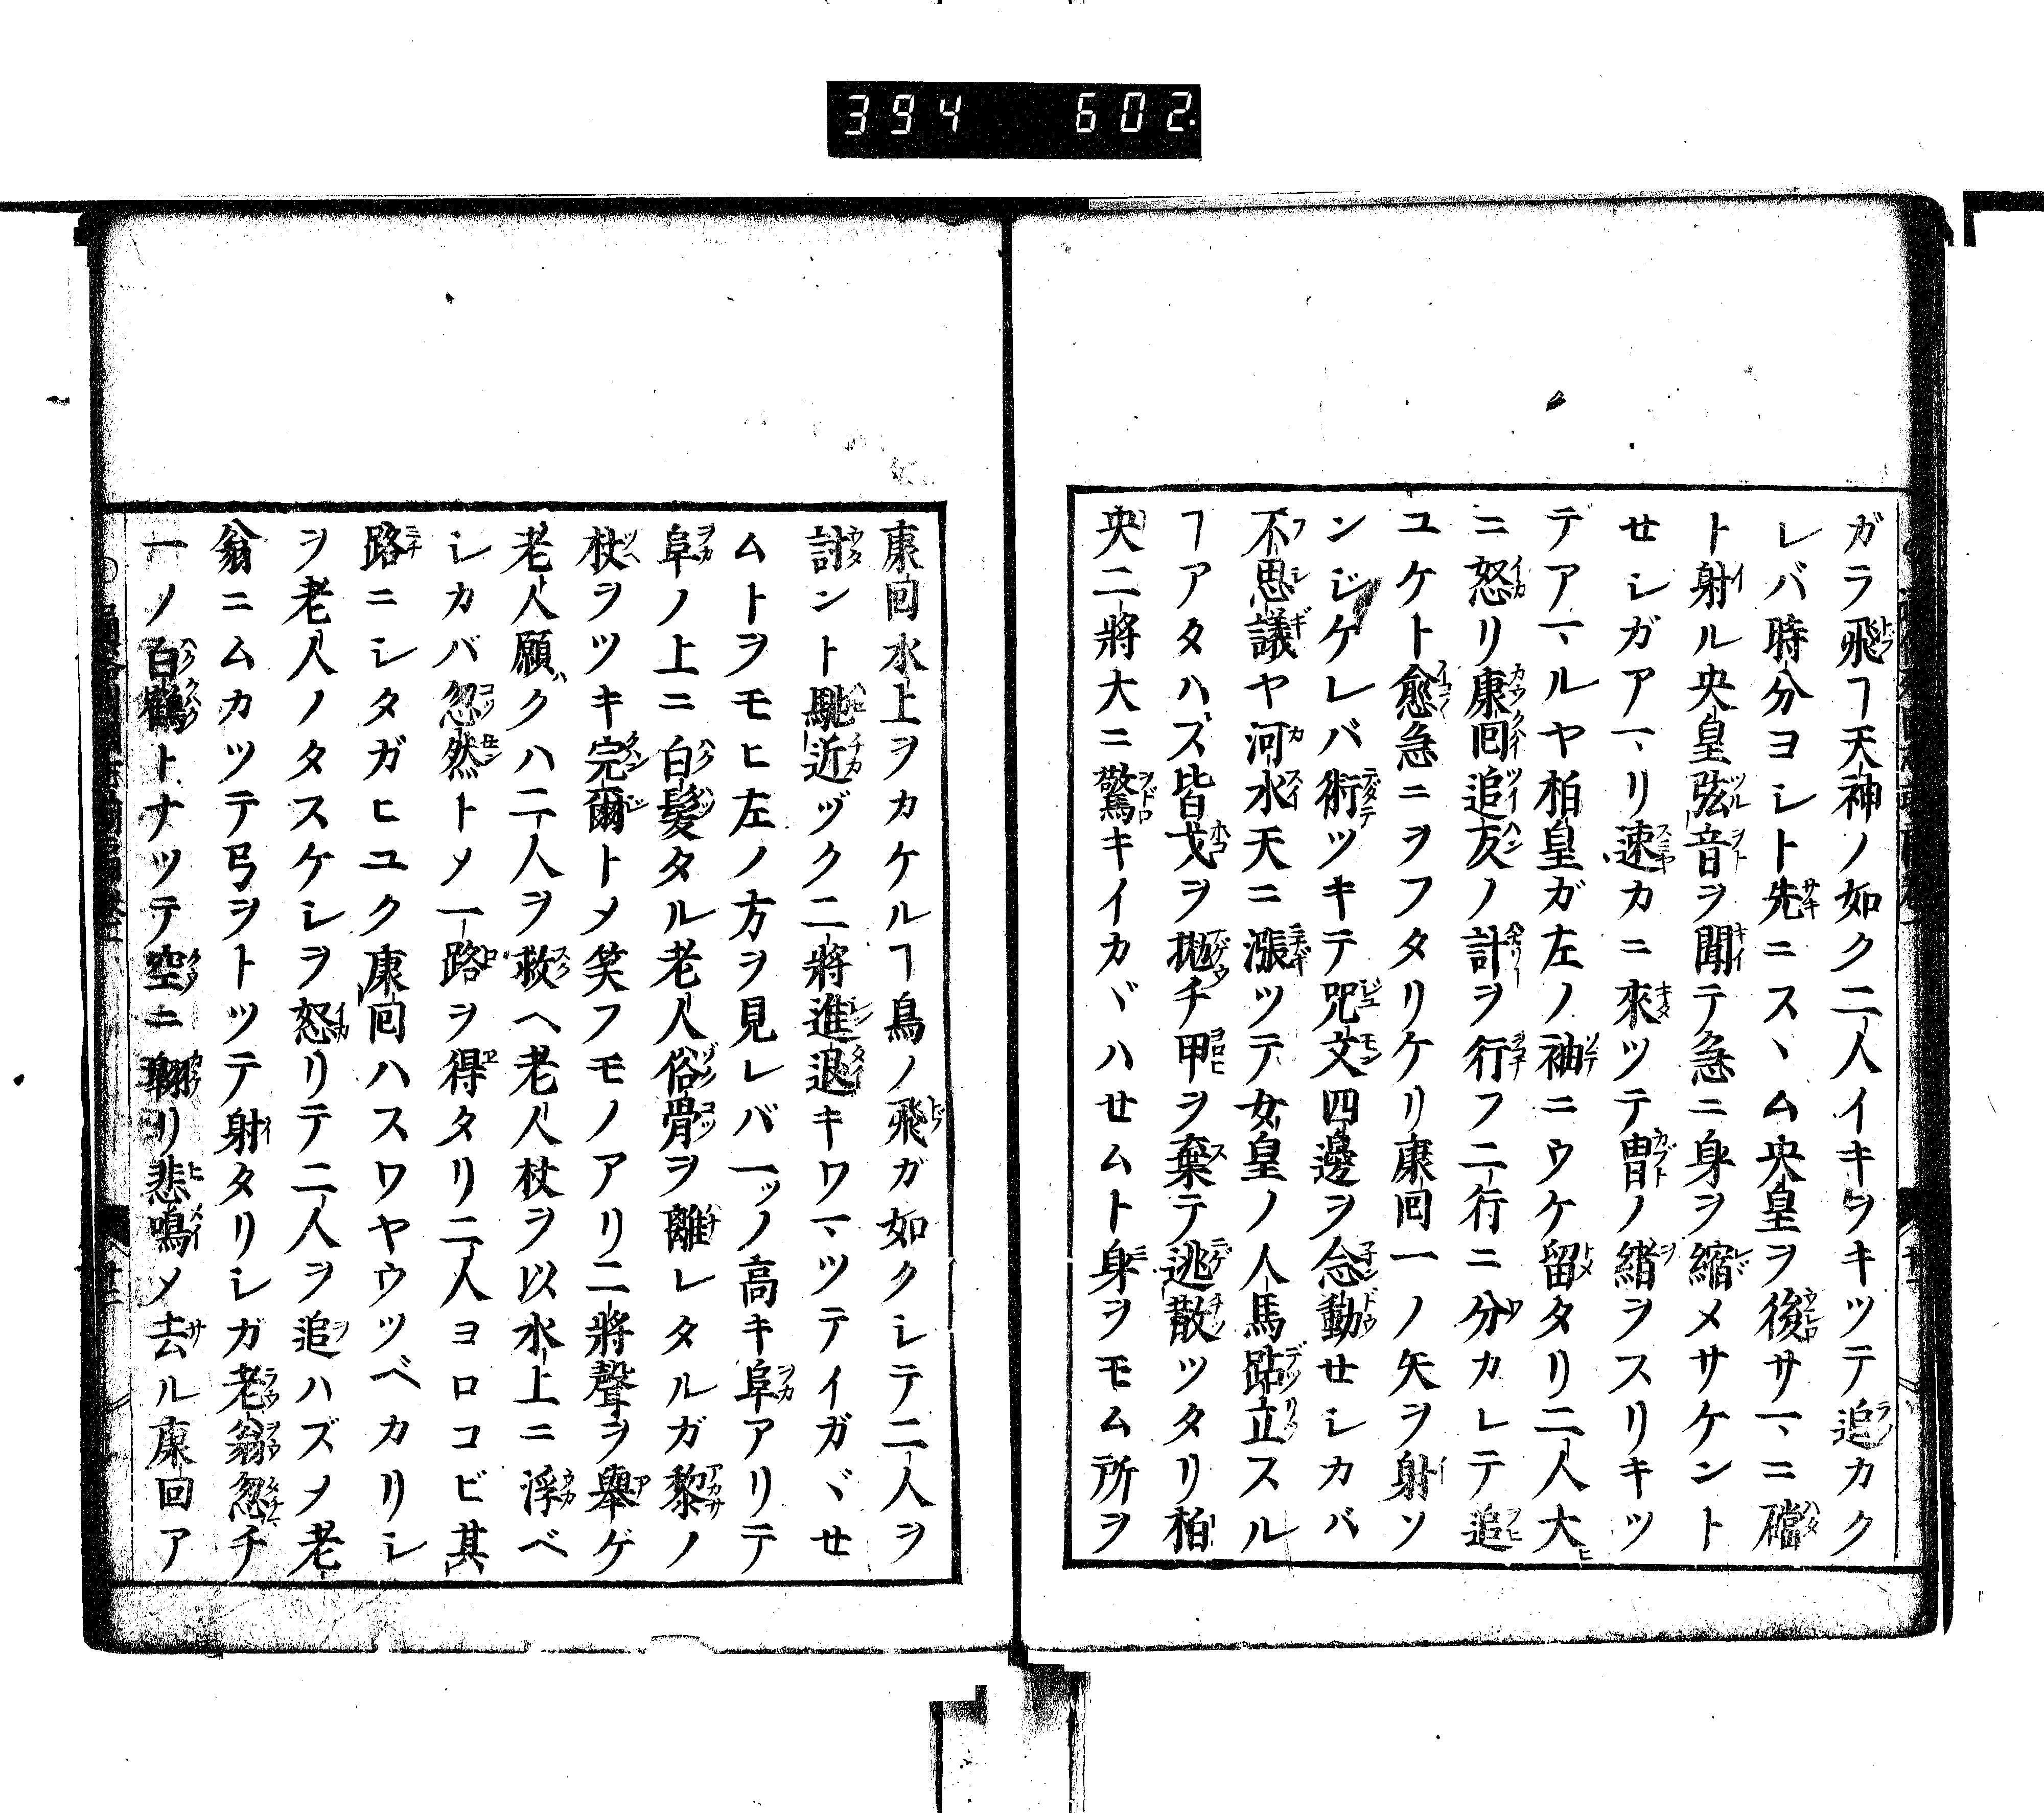 394 602.
ガラ飛ヿ天神ノ如ク二人イキヲキツテ追カク
レバ時分ヨシト先ニスヽム央皇ヲ後サマヽニ礑
ト射ル央皇弦音ヲ聞テ急ニ身ヲ縮メサケント
せシガアマヽリ速カニ來ツテ冑ノ緒ヲスリキツ
デアマヽルヤ柏皇ガ左ノ袖ニウケ留タリ二人大
ニ怒リ康回追友ノ計ヲ行フ二行ニ分カレテ追
ユケト愈急ニヲフタリケリ康回一ノ矢ヲ射ソ
ンジケレバ術ツキテ咒文四邊ヲ念動せシカバ
不思議ヤ河水天ニ漲ツテ女皇ノ人馬跕立スル
ヿアタハズ皆戈ヲ抛チ甲ヲ棄テ逃散ツタリ柏
央二將大ニ驚キイカヾハせムト身ヲモム所ヲ
康回水上ヲカケルヿ鳥ノ飛ガ如クシテ二人ヲ
討ント馳近ヅク二將進退キワマヽツテイガヾせ
ムトヲモヒ左ノ方ヲ見レバ一ッノ高キ阜アリテ
阜ノ上ニ白髮タル老人俗骨ヲ離レタルガ藜ノ
杖ヲツキ完爾トメ笑フモノアリ二將聲ヲ舉ゲ
老人願クハ二人ヲ救ヘ老人杖ヲ以水上ニ浮べ
シカバ忽然トメ一路ヲ得タリ二人ヨロコビ其
路ニシタガヒユク康回ハスワヤウツベカリシ
ヲ老人ノタスケシヲ怒リテ二人ヲ追ハズメ老
翁ニムカツテ弓ヲトツテ射タリシガ老翁忽チ
一ノ白鶴トナツテ空ニ翺リ悲鳴メ去ル康回ア